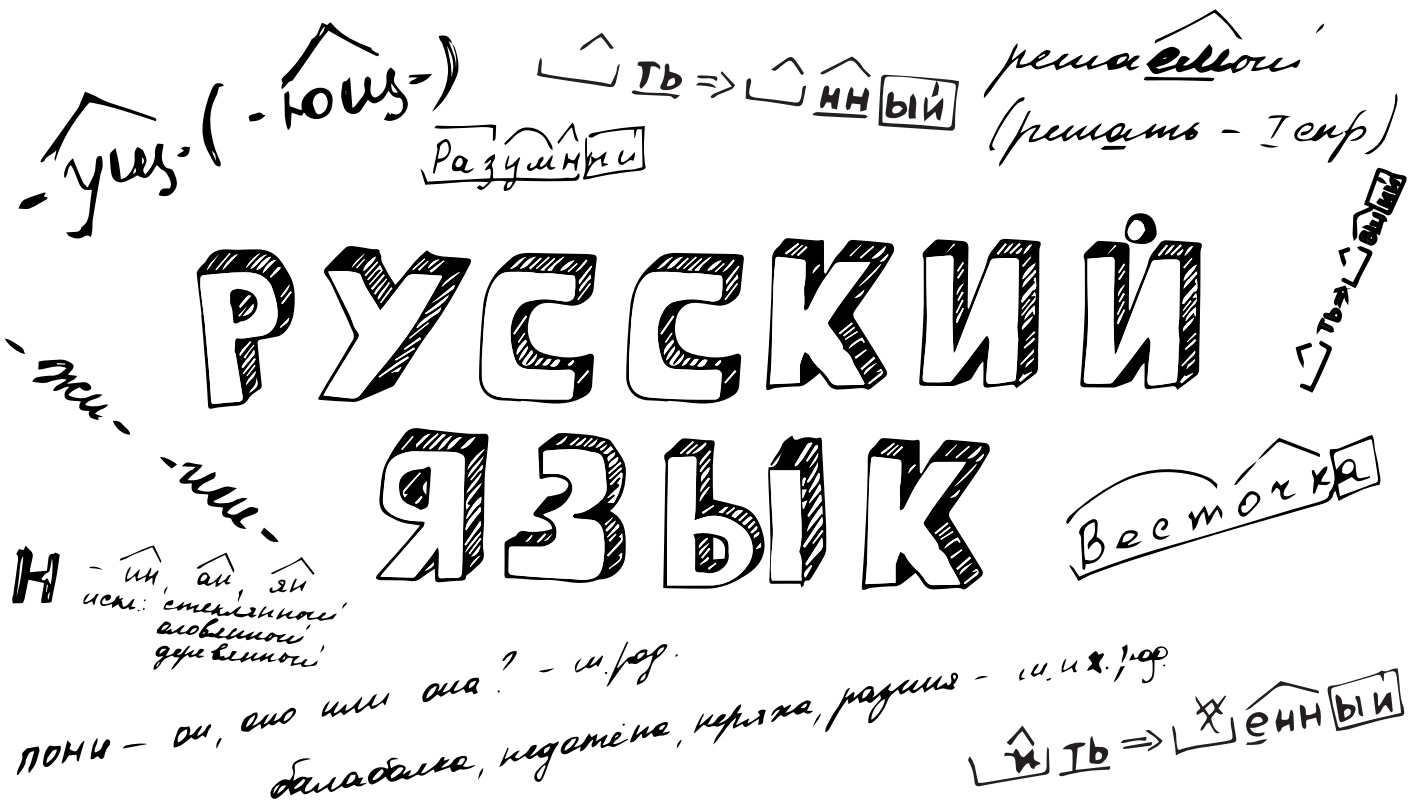 -ущ- (-ющ-)
ть => нный
решаемый
(решать - I спр)
Разумный
ть => вший
РУССКИЙ
ЯЗЫК
-жи-
-ши-
Весточка
Н - ин, ан, ян
искл: стеклянный
оловянный
деревянный
пони - он, оно или она? - м.род.
балаболка, недотёпа, неряха, разиня - м. и ж. род.
и ть => енный